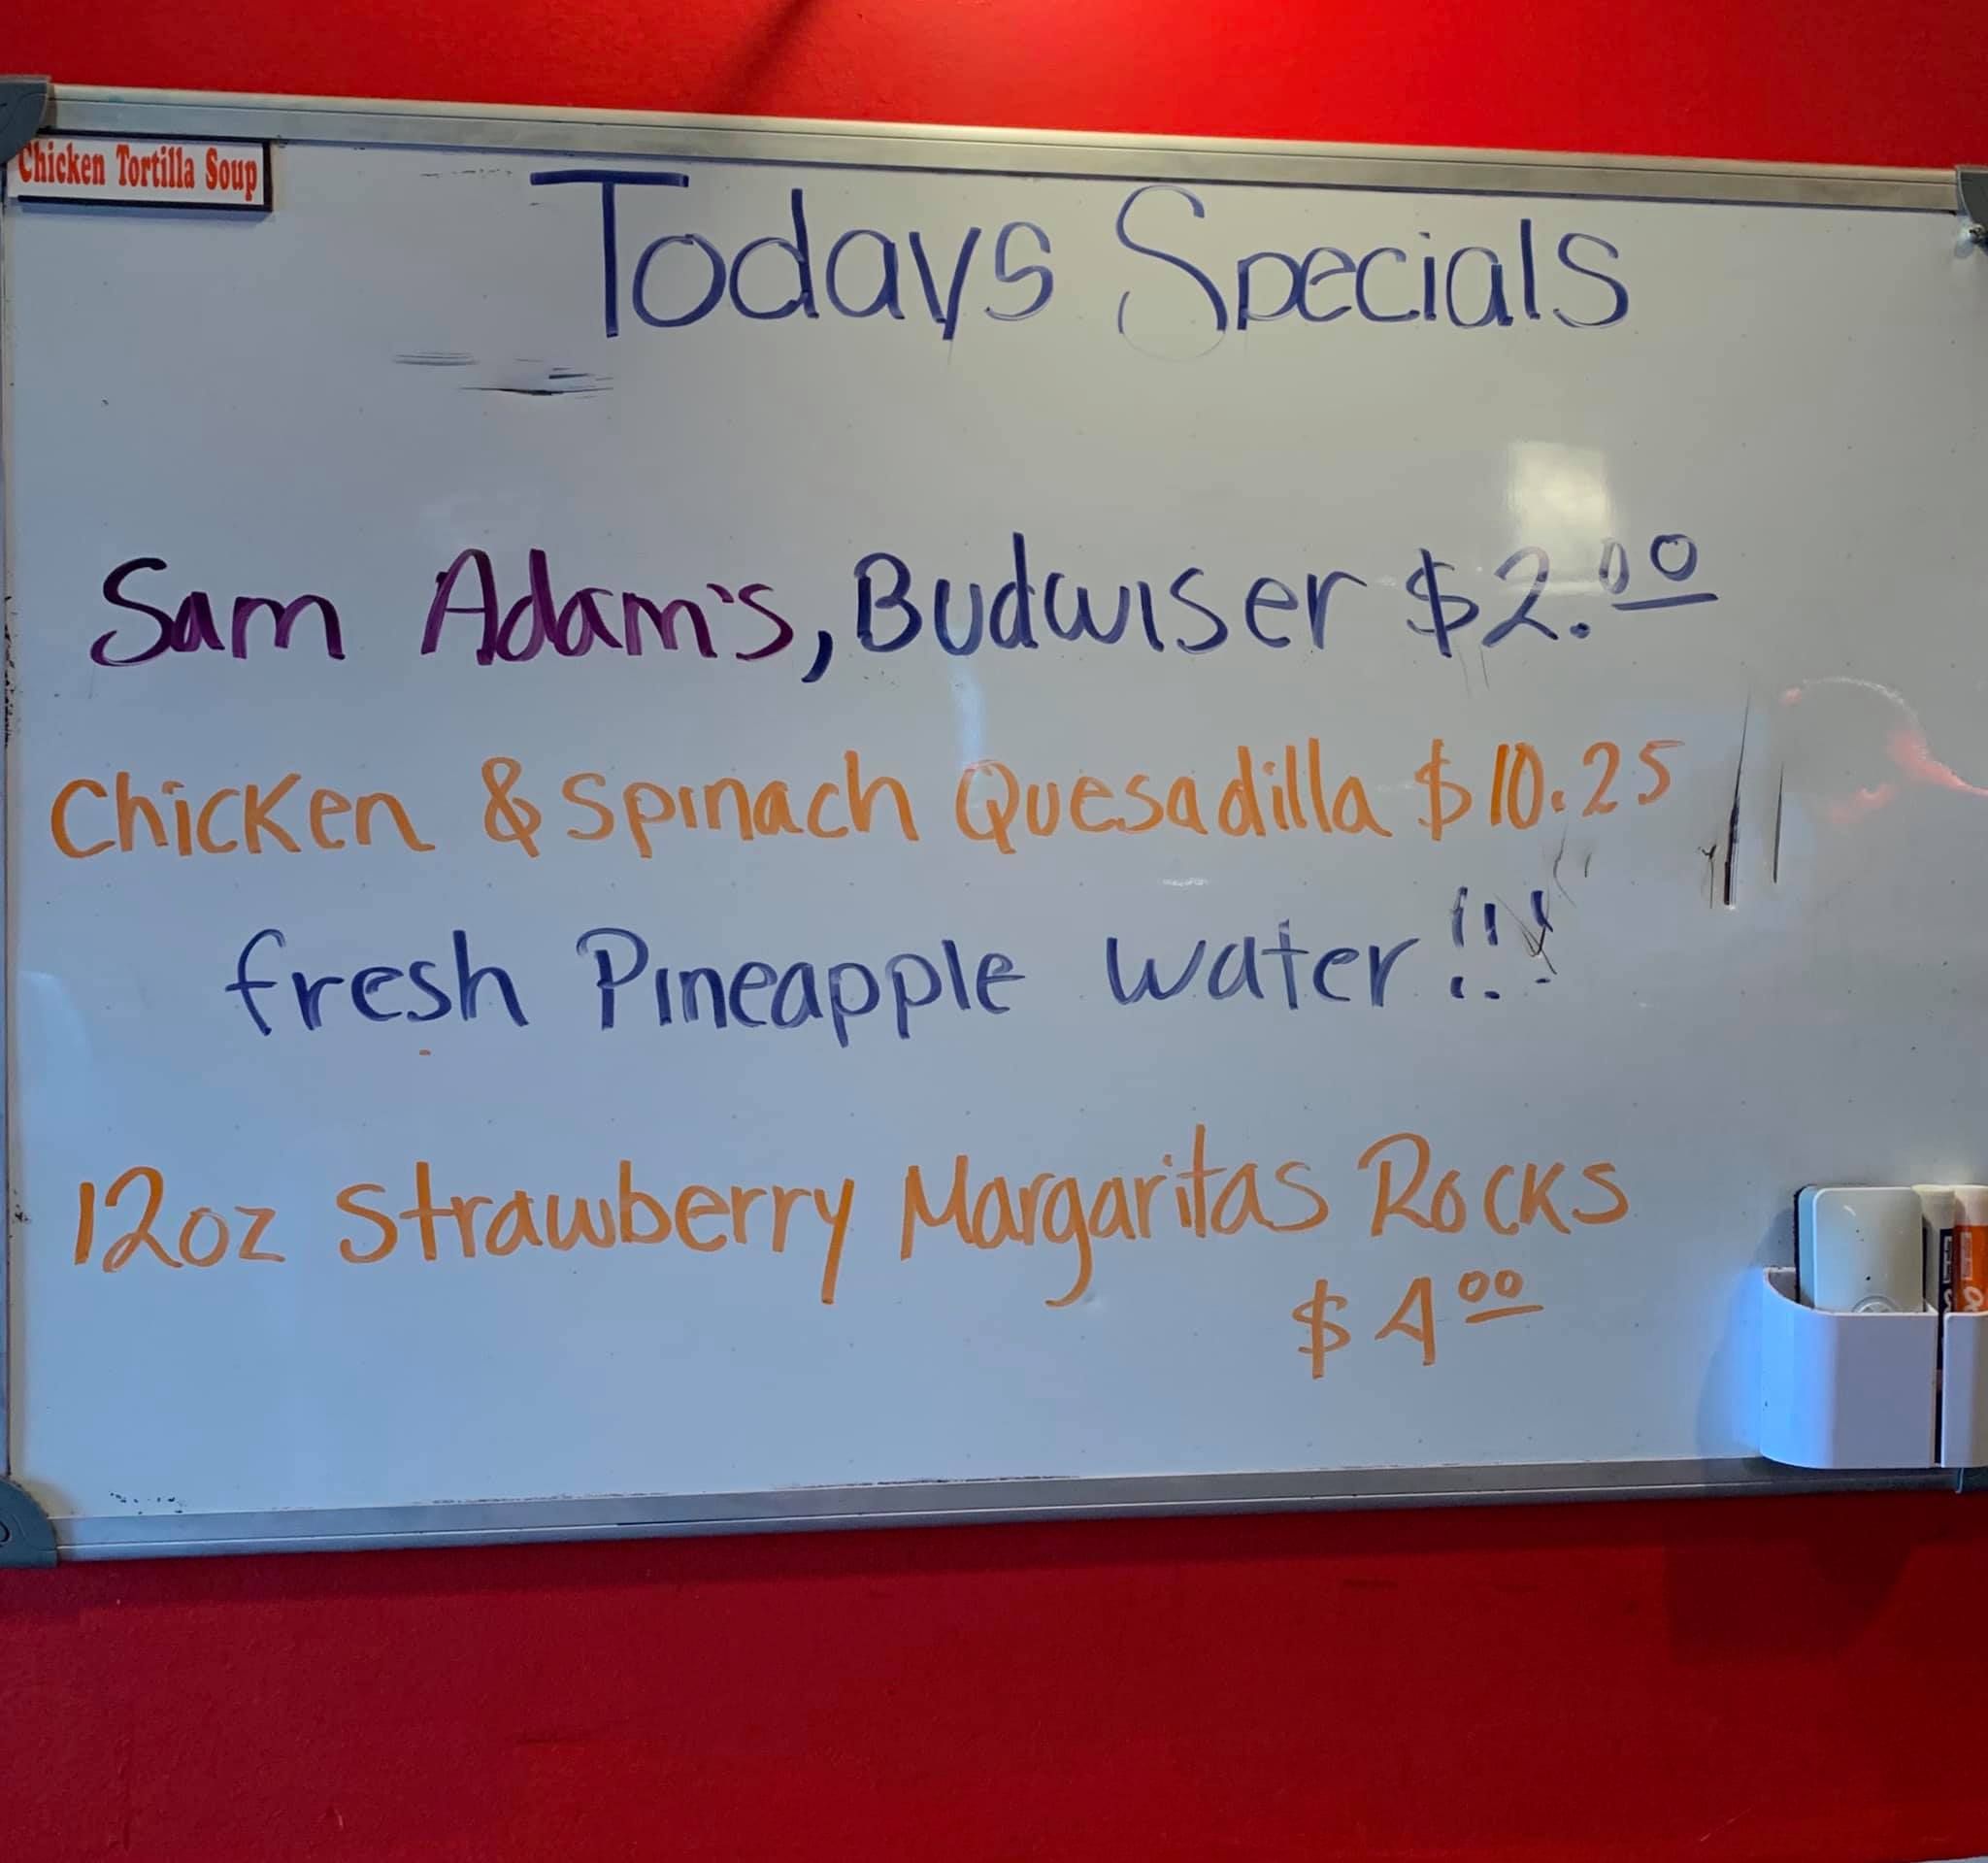 Chicken Tortilla Soup
Todays Specials
Sam Adam's, Budwiser $2.00
Chicken & Spinach Quesadilla $10.25
fresh Pineapple water!!!
12oz Strawberry Margaritas Rocks
$400